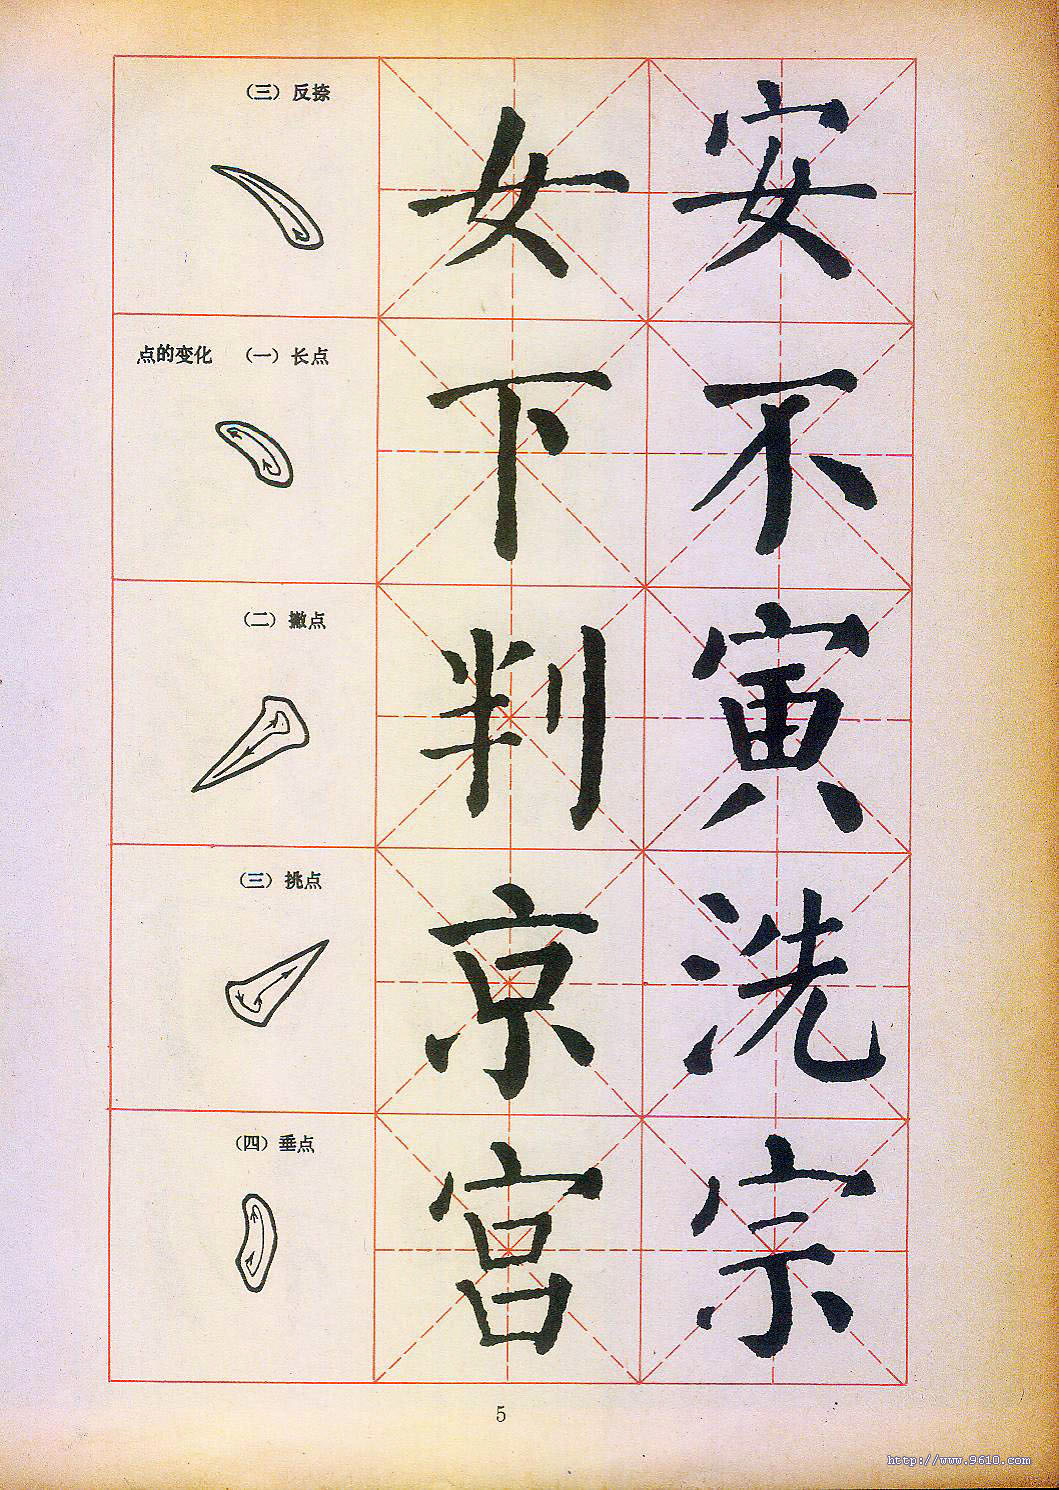 （三）反捺
女 安
点的变化 （一）长点
下 不
（二）撇点
判 寅
（三）挑点
京 洗
（四）垂点
宫 宗
5
http://www.9610.com